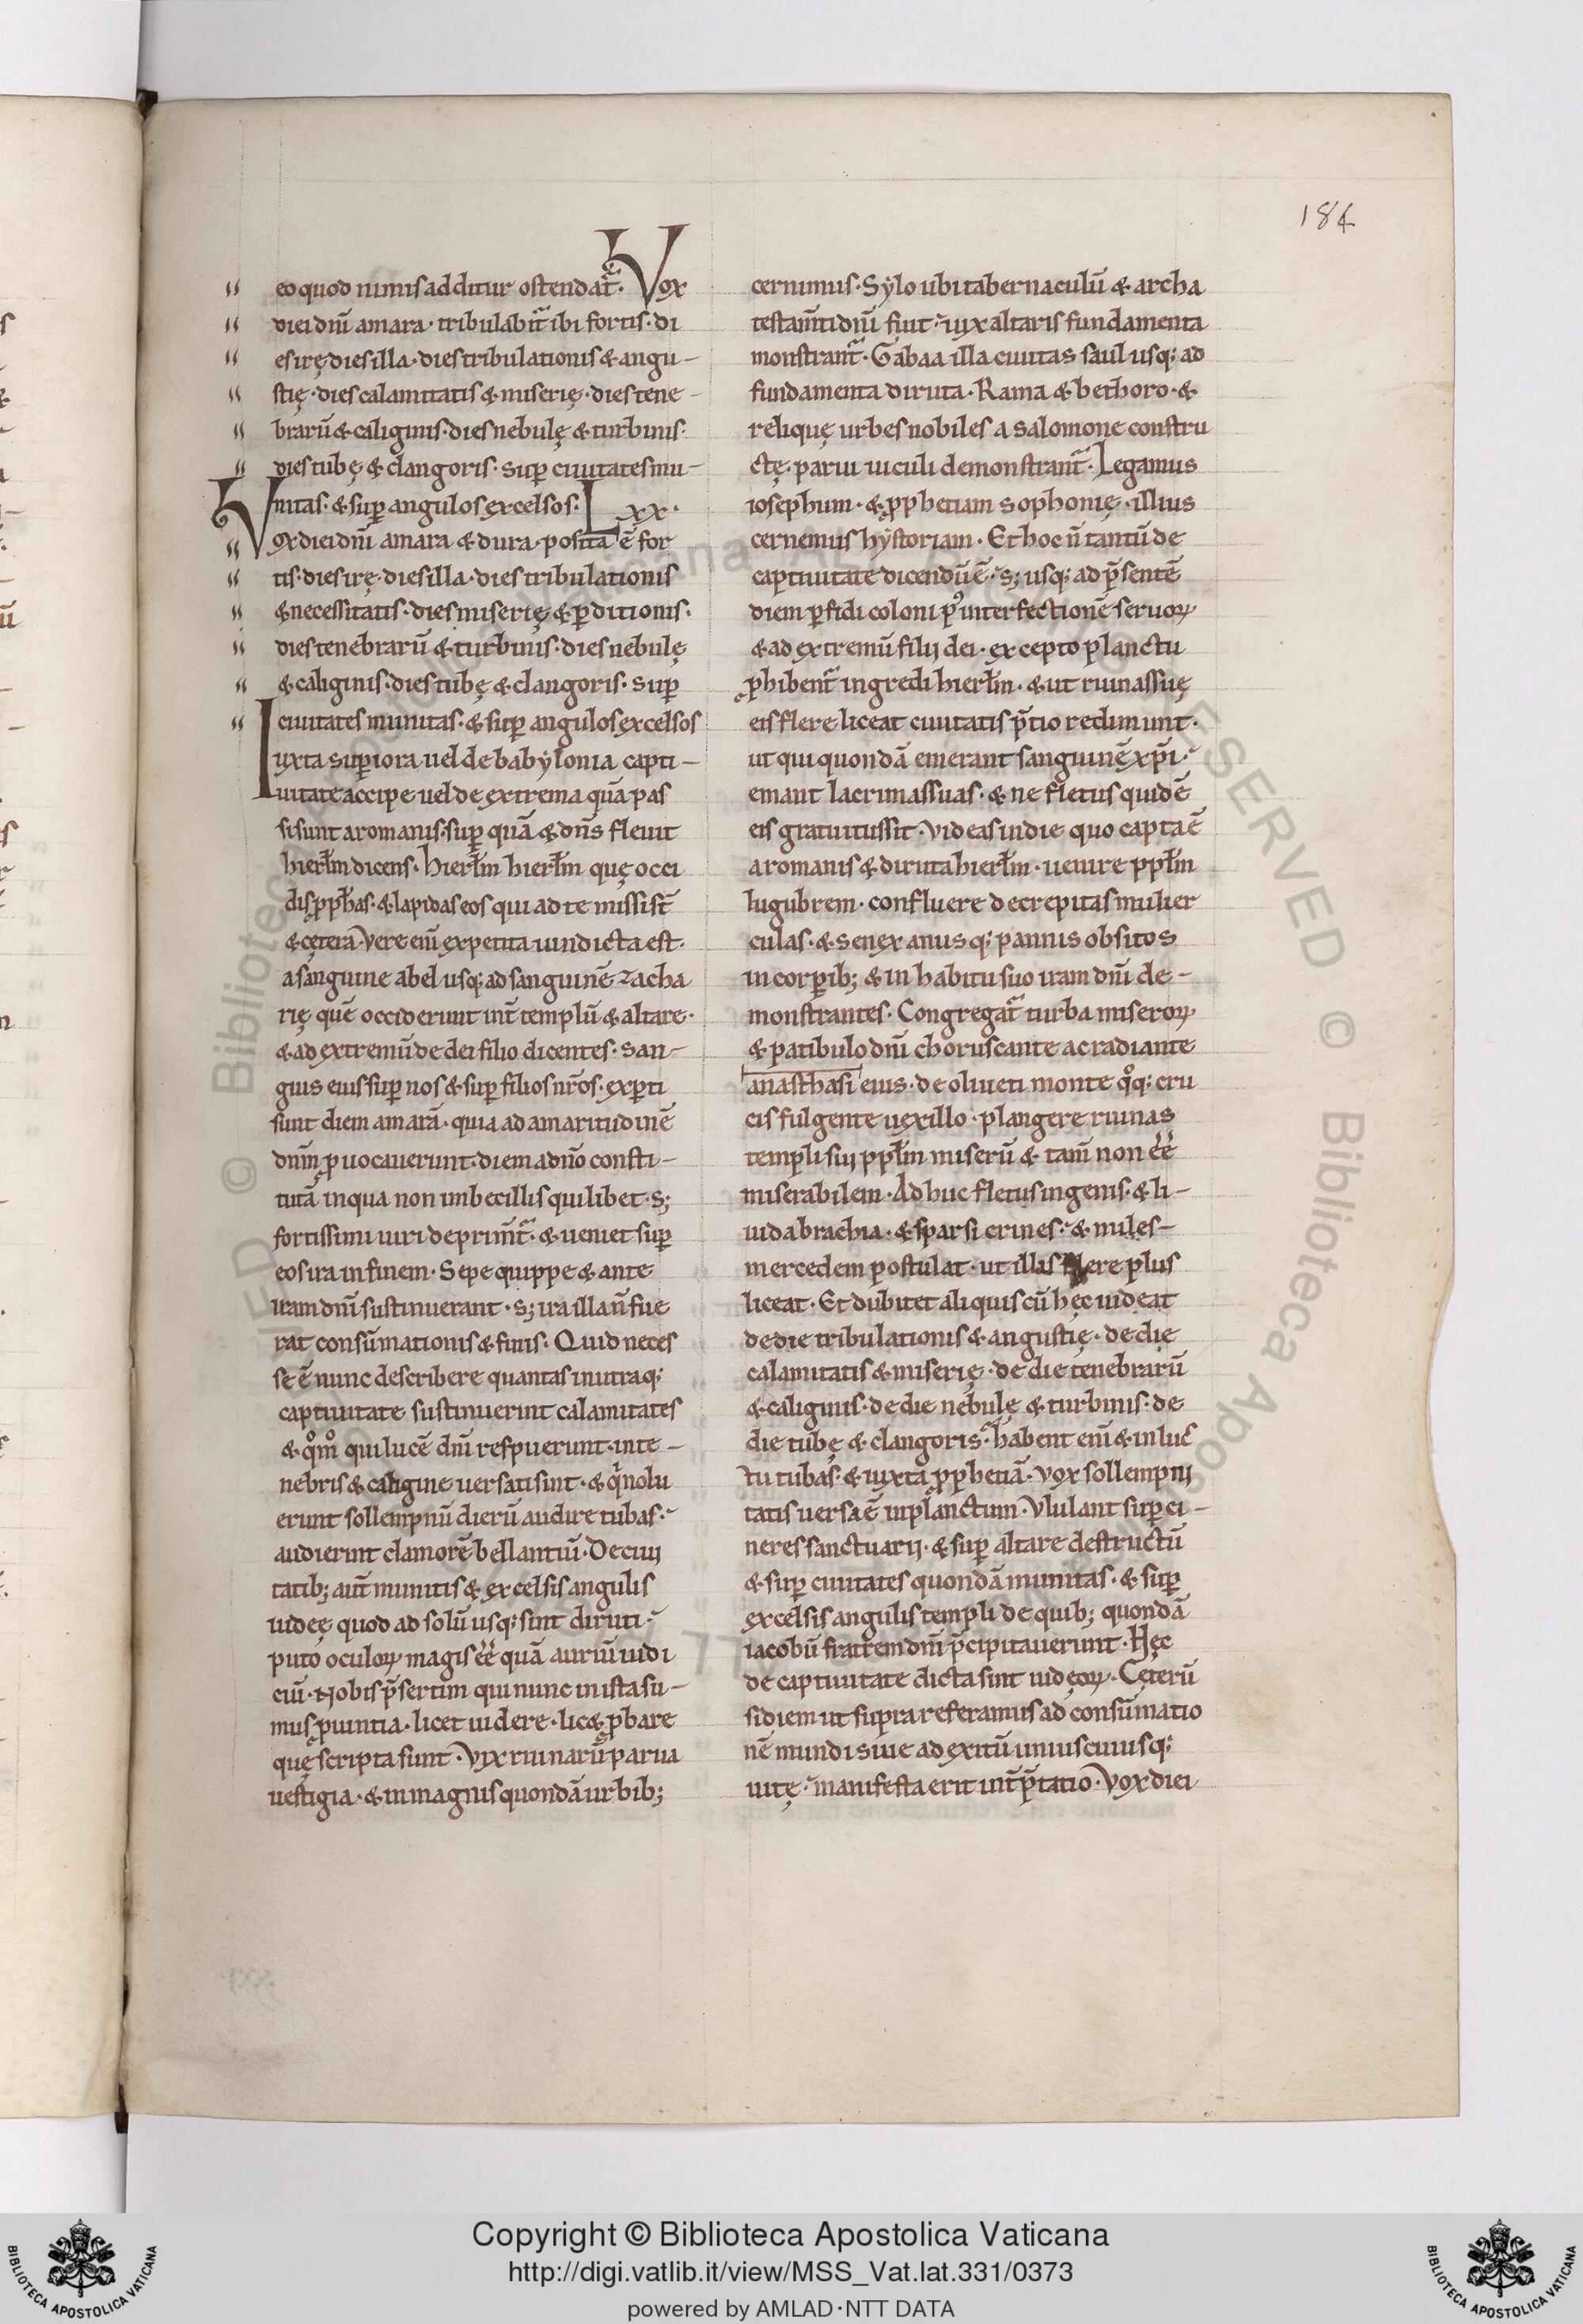 184
eo quod nimis additur ostendat᷑. Vox
diei dnī amara. tribulabit᷑ ibi fortis. di
es irę dies illa. dies tribulationis & angu-
stię. dies calamitatis & miserię. dies tene-
brarū & caliginis. dies nebulę & turbinis.
dies tubę & clangoris. sup̄ ciuitates mu-
nitas. & sup̄ angulos excelsos. Lxx.
Vox diei dnī amara & dura. posita ē for
tis. dies irę. dies illa. dies tribulationis
& necessitatis. dies miserię & p̄ditionis.
dies tenebrarū & turbinis. dies nebulę
& caliginis. dies tubę & clangoris. sup̄
ciuitates munitas. & sup̄ angulos excelsos
Iuxta sup̄iora uel de babẏlonia capti-
uitate accipe uel de extrema quā pas
si sunt a romanis. sup̄ quā & dn̄s fleuit
hierłm dicens. hierłm hierłm quę occi
dis ꝓphas. & lapidas eos qui ad te missi st̄
& cętera. Vere eni᷑ expetita uindicta est.
a sanguine abel usq; ad sanguinē zacha
rię quē occiderunt int̄ templū & altare.
& ad extremū de dei filio dicentes. San-
guis eius sup̄ nos & sup̄ filios nr̄os. exp̄ti
sunt diem amarā. quia ad amaritudinē
dnm̄ ꝓuocauerunt. diem a dn̄o consti-
tutā in qua non imbecillis quilibet. s;
fortissimi uiri deprimt᷑. & ueniet sup̄
eos ira in finem. Sepe quippe & ante
iram dnī sustinuerant. s; ira illa n̄ fue
rat consūmationis & finis. Quid neces
se ē nunc describere quantas in utraq;
captiuitate sustinuerint calamitates
& qͦmͦ qui lucē dnī respuerunt. in te-
nebris & caligine uersati sint. & qͥ nolu
erunt sollempniū dierū audire tubas.
audierint clamorē bellantiū. De ciui
tatib; aut̄ munitis & excelsis angulis
iudeę quod ad solū usq; sint diruti.
puto oculoꝝ magis ēē quā auriū iudi
ciū. Nobis p̄sertim qui nunc in ista su-
mus ꝓuintia. licet uidere. lic& ꝓbare
quę scripta sunt. Vix ruinarū parua
uestigia. & in magnis quondā urbib;
cernimus. Sẏlo ubi tabernaculū & archa
testam̄ti dnī fuit. uix altaris fundamenta
monstrant᷑. Gabaa illa ciuitas saul usq; ad
fundamenta diruta. Rama & bethoro. &
reliquę urbes nobiles a salomone constru
ctę. parui uiculi demonstrant᷑. Legamus
iosephum. & ꝓphetiam sophonię. illius
cernemus hẏstoriam. Et hoc n̄ tantū de
captiuitate dicendū ē. s; usq; ad p̄sentē
diem p̄fidi coloni pꝰ interfectionē seruoꝝ
& ad extremū filii dei. excepto planctu
ꝓhibent᷑ ingredi hierłm. & ut ruinas suę
eis flere liceat ciuitatis p̄tio redimunt.
ut qui quondā emerant sanguinē xp̄i.
emant lacrimas suas. & ne fletus quidē
eis gratuitus sit. Videas in die quo capta ē
a romanis & diruta hierłm. uenire ppłm
lugubrem. confluere decrepitas mulier
culas. & senex anusq; pannis obsitos
in corp̄ib; & in habitu suo iram dnī de-
monstrantes. Congregat᷑ turba miseroꝝ
& patibulo dnī choruscante ac radiante
anasthasi eius. de oliueti monte qͦq; cru
cis fulgente uexillo. plangere ruinas
templi sui ppłm miserū & tam̄ non ēē
miserabilem. Adhuc fletus in genis. & li-
uida brachia. & sparsi crines. & miles-
mercedem postulat. ut illis flere plus
liceat. Et dubitet aliquis cū hęc uideat
de die tribulationis & angustię. de die
calamitatis & miserię. de die tenebrarū
& caliginis. de die nebulę & turbinis. de
die tubę & clangoris. habent eni᷑ & in luc
tu tubas. & iuxta ꝓphetiā. Vox sollempni
tatis uersa ē in planctum. Vlulant sup̄ ci-
neres sanctuarii. & sup̄ altare destructū
& sup̄ ciuitates quondā munitas. & sup̄
excelsis angulis templi de quib; quondā
iacobū fratrem dnī p̄cipitauerunt. Hęc
de captiuitate dicta sint iudęoꝝ. Cęterū
si diem ut supra referamus ad consūmatio
nē mundi siue ad exitū uniuscuiusq;
uitę. manifesta erit int̄p̄tatio. Vox diei
© Biblioteca Apostolica Vaticana ALL RIGHTS RESERVED
Copyright © Biblioteca Apostolica Vaticana
http://digi.vatlib.it/view/MSS_Vat.lat.331/0373
powered by AMLAD·NTT DATA
BIBLIOTECA APOSTOLICA VATICANA
BIBLIOTECA APOSTOLICA VATICANA